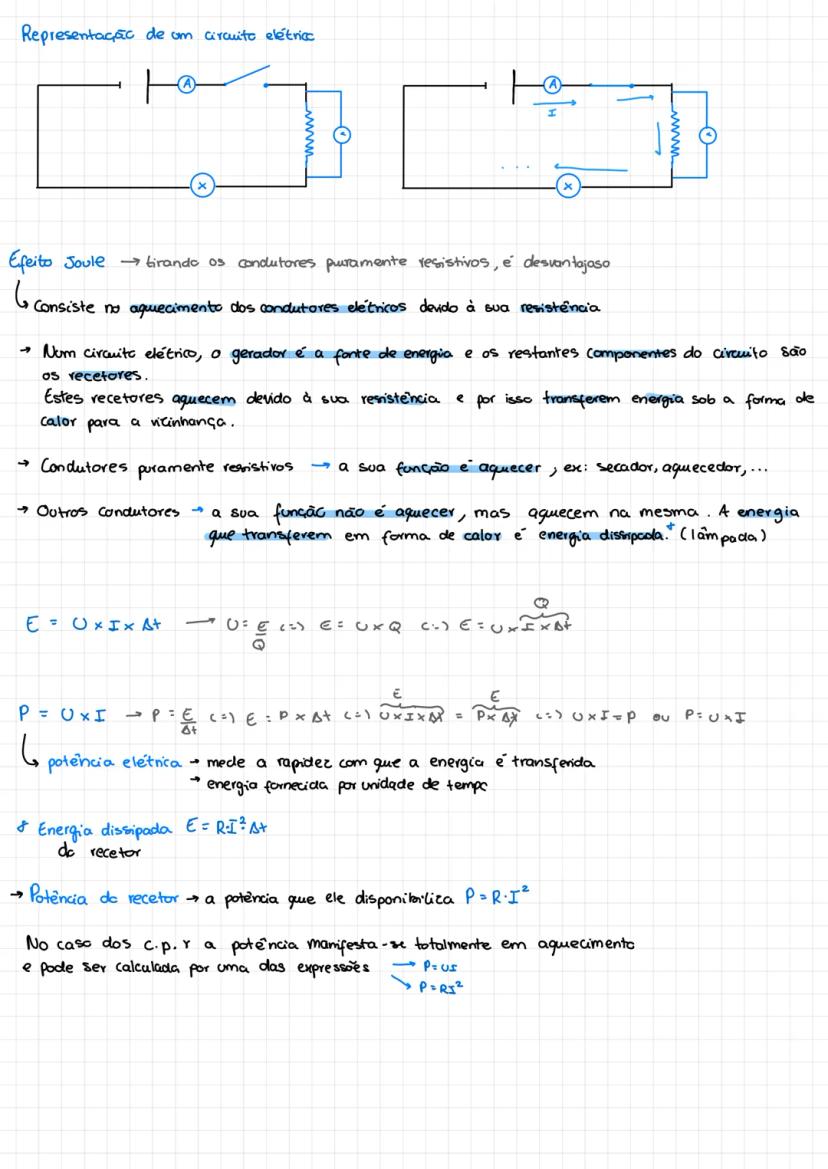 Representação de um circuito elétrico
A
A
I
. . .
x
x
Efeito Joule → tirando os condutores puramente resistivos, é desvantajoso
Consiste no aquecimento dos condutores elétricos devido à sua resistência
→ Num circuito elétrico, o gerador é a fonte de energia e os restantes componentes do circuito são
os recetores.
Estes recetores aquecem devido à sua resistência e por isso transferem energia sob a forma de
calor para a vizinhança.
→ Condutores puramente resistivos → a sua função é aquecer, ex: secador, aquecedor, ...
→ Outros condutores → a sua função não é aquecer, mas aquecem na mesma. A energia
que transferem em forma de calor é energia dissipada.* (lâmpada)
E = U x I x Δt → U = E/Q (=) E = U x Q (=) E = U x I x Δt
Q
P = U x I → P = E/Δt (=) E = P x Δt (=) U x I x Δt = P x Δt (=) U x I = P ou P = U x I
E E
potência elétrica → mede a rapidez com que a energia é transferida
→ energia fornecida por unidade de tempo
* Energia dissipada E = R·I²·Δt
do recetor
→ Potência do recetor → a potência que ele disponibiliza P = R·I²
No caso dos c.p.r a potência manifesta-se totalmente em aquecimento
e pode ser calculada por uma das expressões → P = UI
→ P = RI²